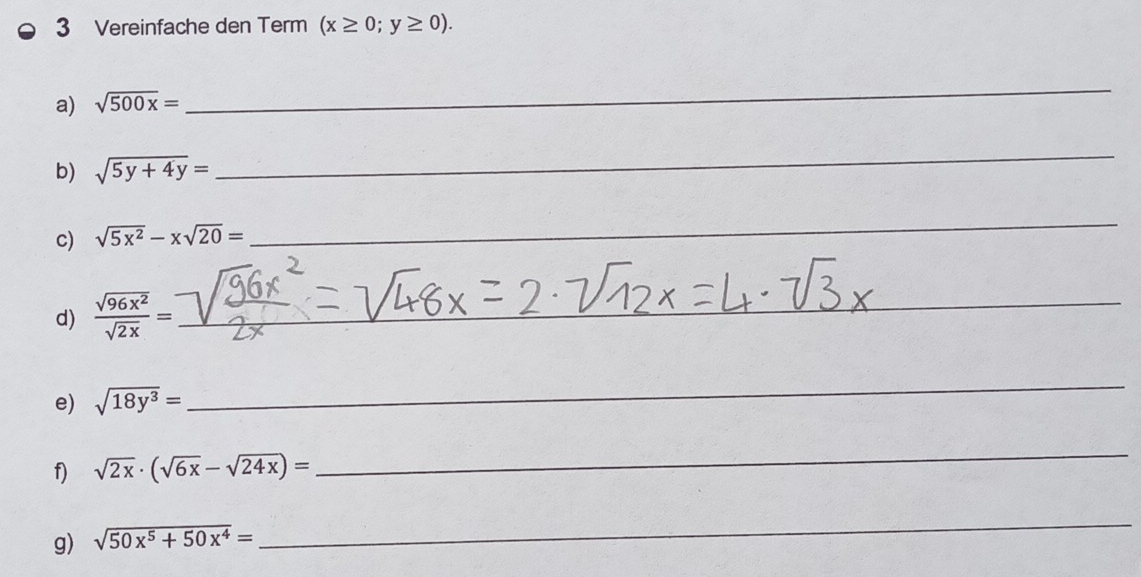 3 Vereinfache den Term (x ≥ 0; y ≥ 0).
a) √(500x) =
b) √(5y + 4y) =
c) √(5x²) − x√20 =
d) √(96x²)/√(2x) = √(96x²/2x) = √48x = 2·√12x = 4·√3x
e) √(18y³) =
f) √(2x) · (√(6x) − √(24x)) =
g) √(50x⁵ + 50x⁴) =